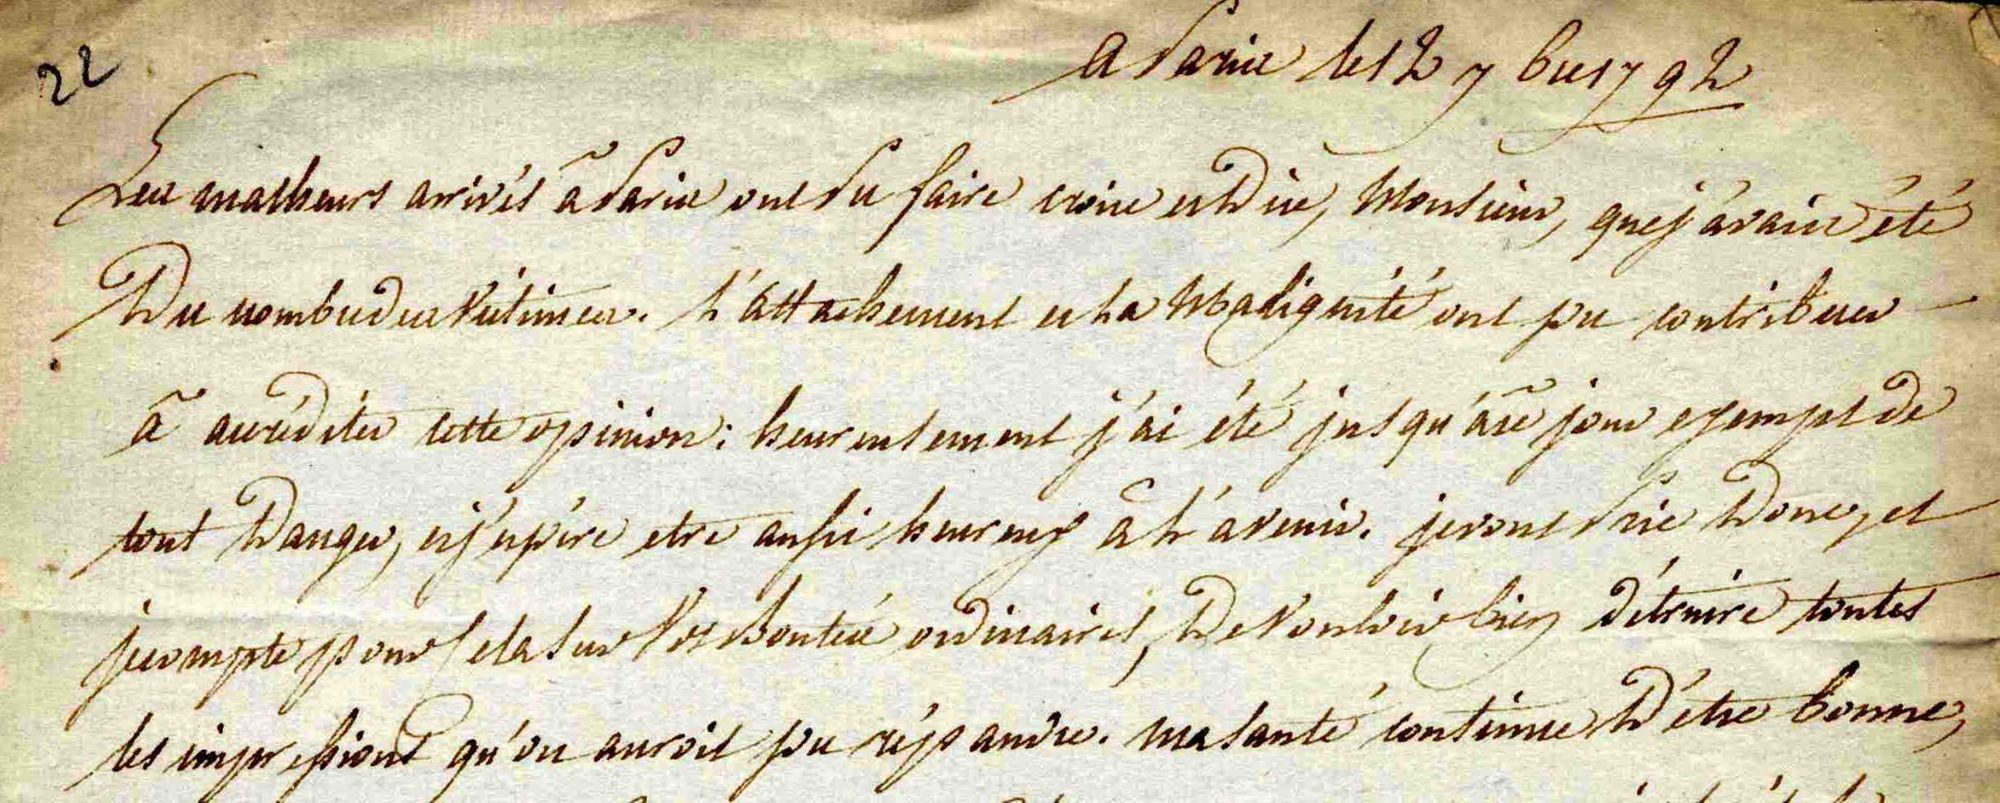 22
a Paris le 12 7bre 1792
Les malheurs arrivés à Paris ont pu faire croire et dire, Monsieur, que j'avais été
Du nombre des Victimes. L'attachement et la Malignité ont pu contribuer
à accréditer cette opinion; heureusement j'ai été jusqu'à ce jour exempt de
tout Danger, et j'espère etre aussi heureux à L'avenir. je vous Prie Donc, et
je compte pour cela sur Vos Bontés ordinaires, De Vouloir bien détruire toutes
les impressions qu'on auroit pu répandre. ma santé continue D'être bonne,